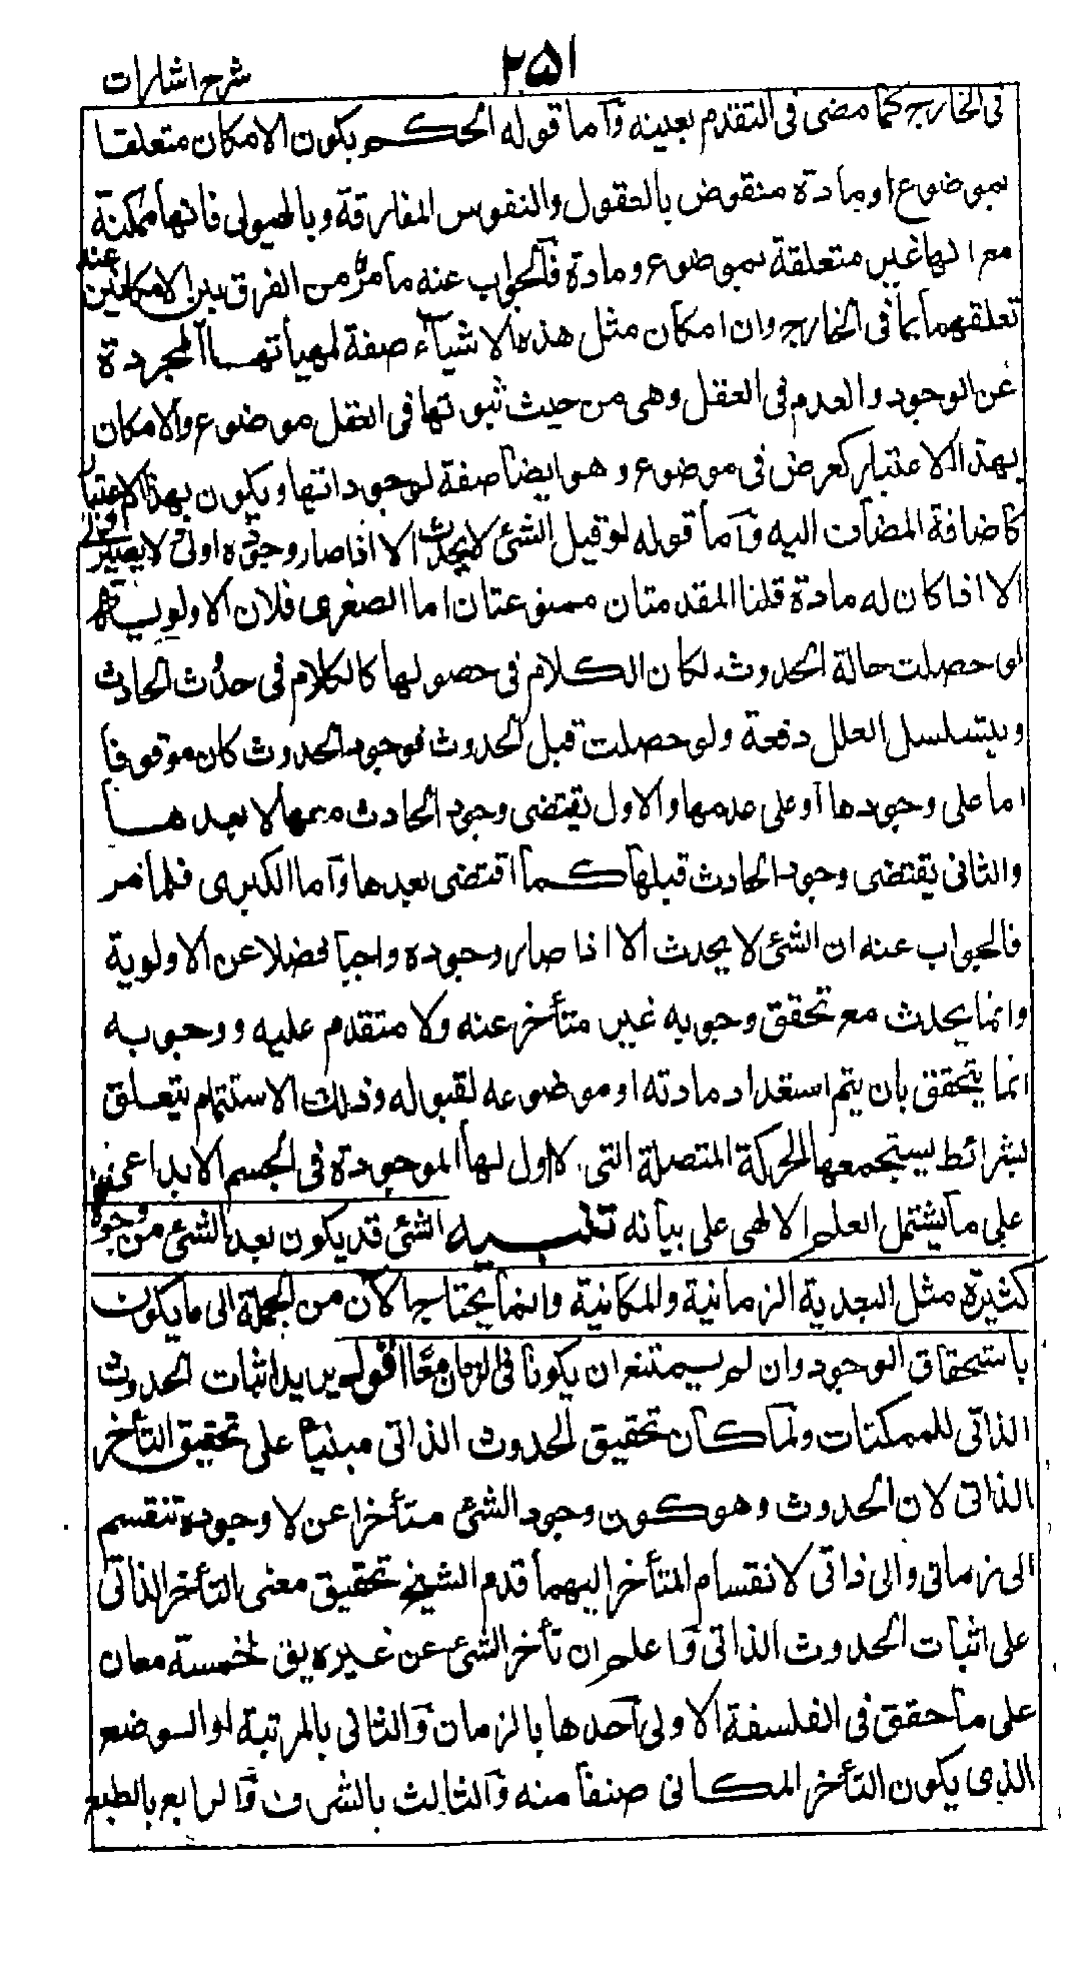 ٢٥١
شرح اشارات
فى الخارج كما مضى فى التقدم بعينه وآما قوله الحكم بكون الامكان متعلقا
بموضوع او مادة منقوض بالعقول والنفوس المفارقة وبالهيولى فانها ممكنة
مع انها غير متعلقة بموضوع ومادة فالجواب عنه ما مر من الفرق بين الامكانين عند
تعلقهما بما فى الخارج وان امكان مثل هذه الاشياء صفة لمهياتها المجردة
عن الوجود والعدم فى العقل وهى من حيث ثبوتها فى العقل موضوع والامكان
بهذا الاعتبار كعرض فى موضوع وهو ايضا صفة لوجوداتها ويكون بهذا الاعتبار
كاضافة المضاف اليه وآما قوله لو قيل الشئ لا يحدث الا اذا صار وجوده اولى ولا يصير اولى
الا اذا كان له مادة قلنا المقدمتان ممنوعتان اما الصغرى فلان الاولوية
لو حصلت حالة الحدوث لكان الكلام فى حصولها كالكلام فى حدث الحادث
ويتسلسل العلل دفعة ولو حصلت قبل الحدوث فوجود الحدوث كان موقوفا
اما على وجودها او على عدمها والاول يقتضى وجود الحادث معها لا بعدها
والثانى يقتضى وجود الحادث قبلها كما اقتضى بعدها وآما الكبرى فلما مر
فالجواب عنه ان الشئ لا يحدث الا اذا صار وجوده واجبا فضلا عن الاولوية
وانما يحدث مع تحقق وجوبه غير متأخر عنه ولا متقدم عليه ووجوبه
انما يتحقق بان يتم استعداد مادته او موضوعه لقبوله وذلك الاستتمام يتعلق
بشرائط يستجمعها الحركة المتصلة التى لا اول لها الموجودة فى الجسم الابداعى
على ما يشتمل العلم الالهى على بيانه تنبيه الشئ قد يكون بعد الشئ من وجوه
كثيرة مثل البعدية الزمانية والمكانية وانما يحتاج الآن من الجملة الى ما يكون
باستحقاق الوجود وان لم يمتنع ان يكونا فى الزمان معا اقول يريد اثبات الحدوث
الذاتى للممكنات ولما كان تحقيق الحدوث الذاتى مبنيا على تحقيق التأخر
الذاتى لان الحدوث وهو كون وجود الشئ متأخرا عن لا وجوده تنقسم
الى زمانى والى ذاتى لانقسام المتأخر اليهما قدم الشيخ تحقيق معنى التأخر الذاتى
على اثبات الحدوث الذاتى وآعلم ان تأخر الشئ عن غيره يق لخمسة معان
على ما حقق فى الفلسفة الاولى آحدها بالزمان وآلثانى بالمرتبة او الوضع
الذى يكون التأخر المكانى صنفا منه وآلثالث بالشرف وآلرابع بالطبع